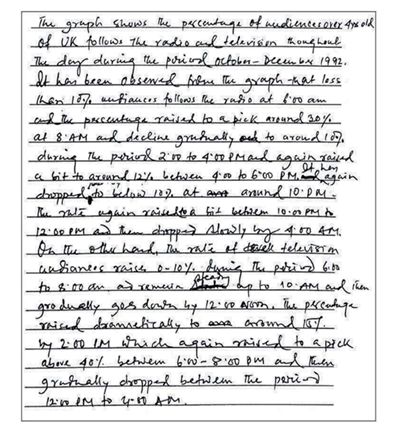 The graph shows the percentage of audiences over 4 yrs old
of UK follows the radio and television throughout
the day during the period October - December 1992.
It has been observed from the graph that less
than 10% audiances follows the radio at 6:00 am
and the percentage raised to a pick around 30%
at 8 AM and decline gradually to around 10%
during the period 2:00 to 4:00 PM and again raised
a bit to around 12% between 4:00 to 6:00 PM. It has again
dropped to below 10% at around 10:PM.
The rate again raised to a bit between 10:00 PM to
12:00 PM and then dropped slowly by 4:00 AM.
On the other hand, the rate of television
audiances raises 0-10% during the period 6:00
to 8:00 am, and steady up to 10 AM and then
gradually goes down by 12:00 noon. The percentage
raised dramatically to around 15%
by 2:00 PM which again raised to a pick
above 40% between 6:00 - 8:00 PM and then
gradually dropped between the period
12:00 PM to 4:00 AM.